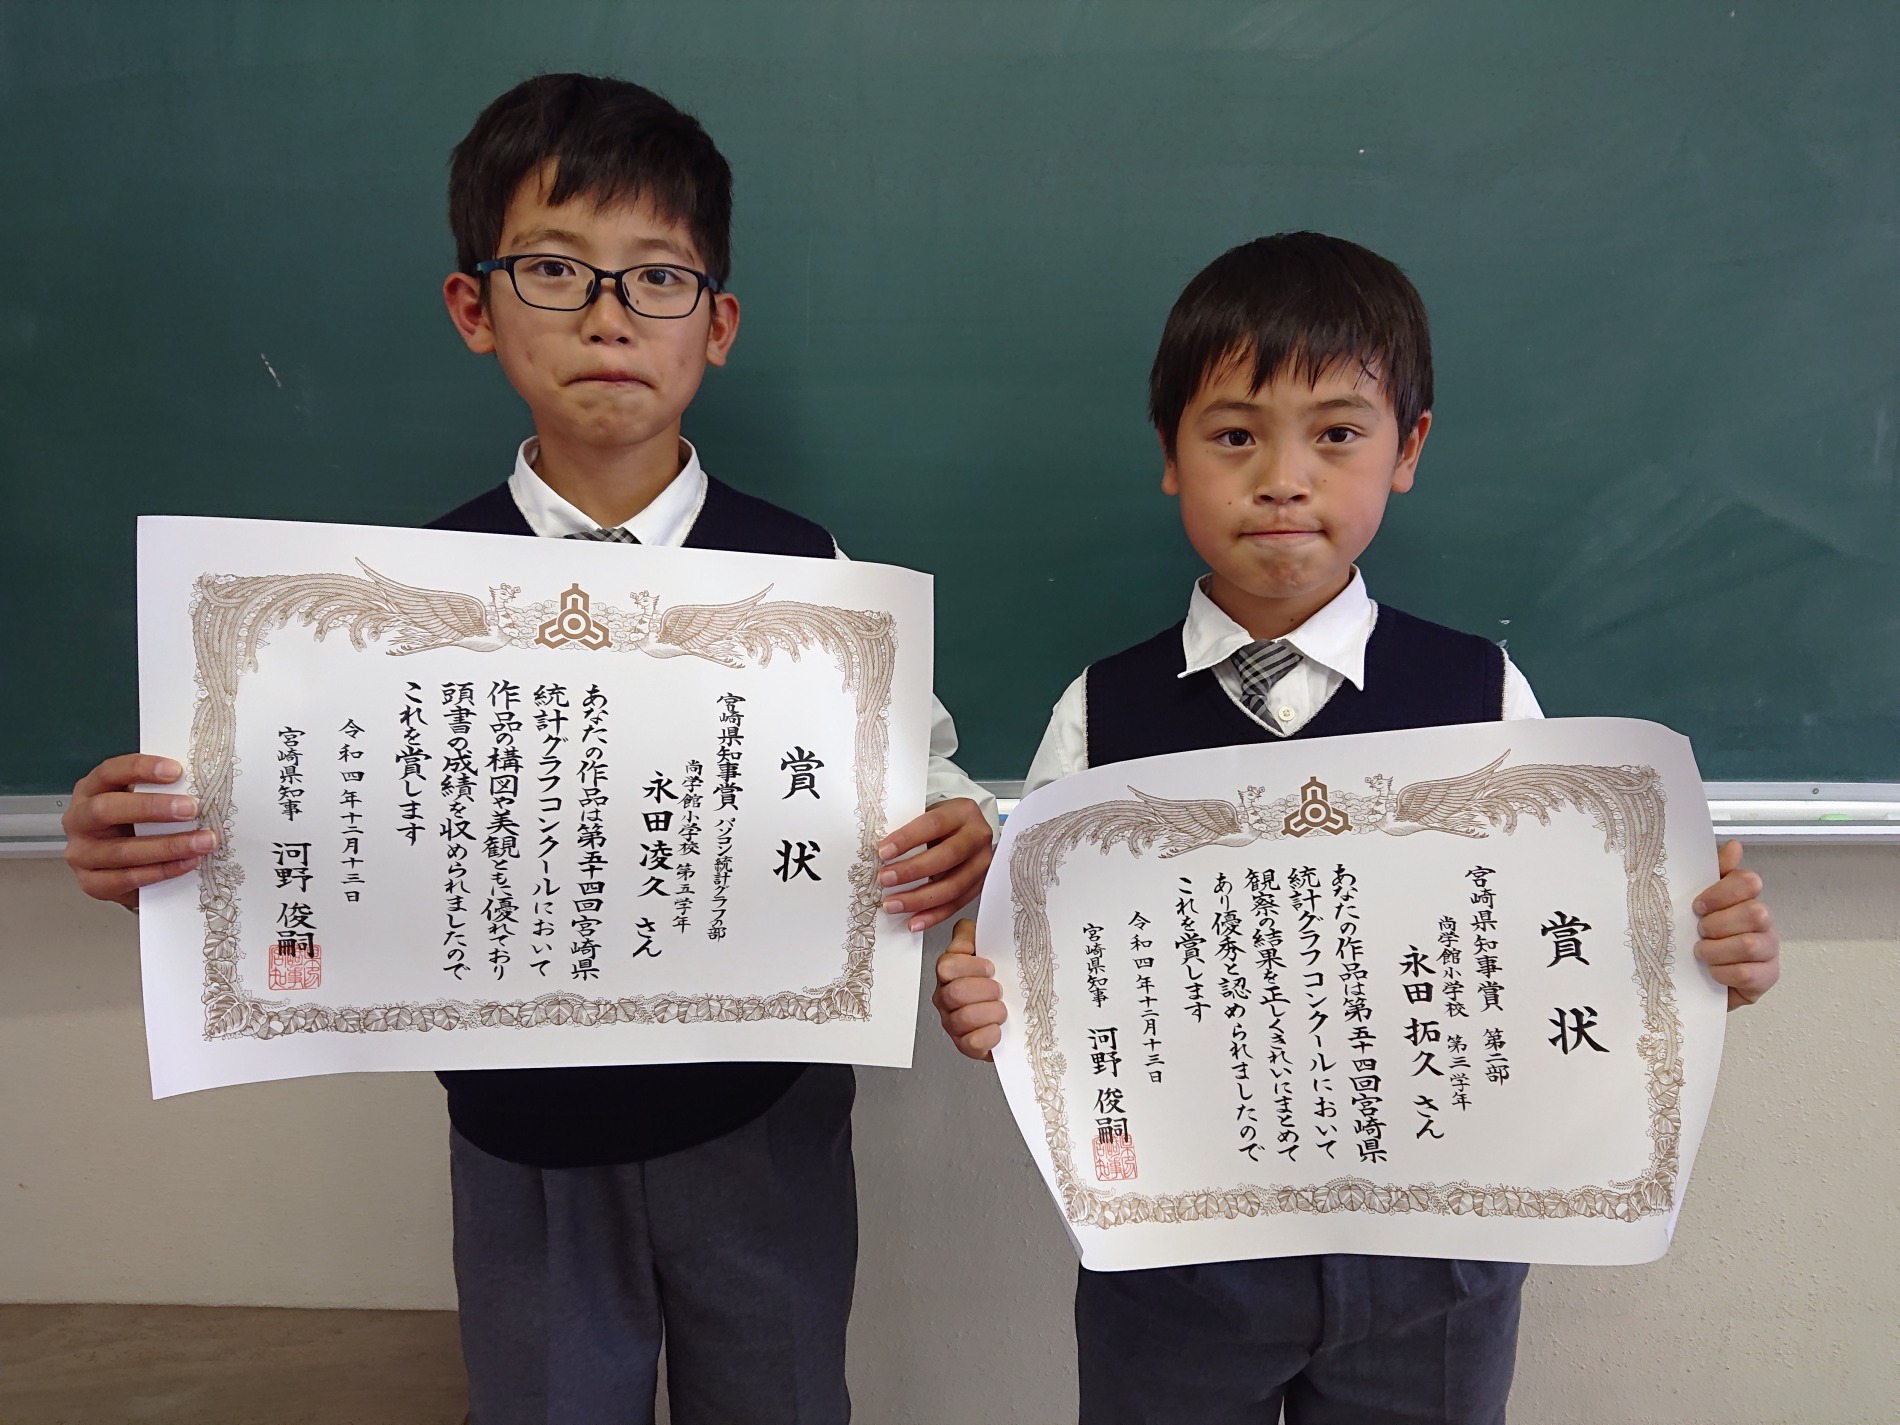 賞状
宮崎県知事賞 パソコン統計グラフの部
尚学館小学校 第五学年
永田凌久 さん
あなたの作品は第五十四回宮崎県
統計グラフコンクールにおいて
作品の構図や美観ともに優れており
頭書の成績を収められましたので
これを賞します
令和四年十二月十三日
宮崎県知事 河野俊嗣
賞状
宮崎県知事賞 第二部
尚学館小学校 第三学年
永田拓久 さん
あなたの作品は第五十四回宮崎県
統計グラフコンクールにおいて
観察の結果を正しくきれいにまとめて
あり優秀と認められましたので
これを賞します
令和四年十二月十三日
宮崎県知事 河野俊嗣